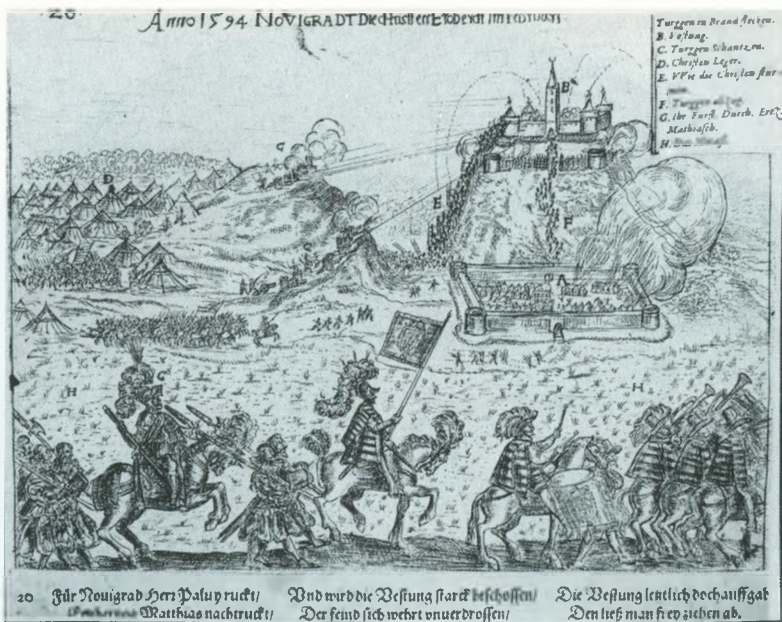 20
Anno 1594 NOVIGRADT Die Christen Eroberdt im
Turggen in Brand stocken.
B. Vestung.
C. Turggen Schantzen.
D. Christen Leger.
E. VVie die Christen stur
F.
G. Ihr Furst. Durch. Ertz
Mathiasch.
H.
B
C
D
E
F
A
C
H
G
H
20 Für Novigrad Herr Palvy ruckt/
Matthias nachruckt/
Vnd wird die Vestung starck beschossen/
Der feind sich wehrt vnuerdrossen/
Die Vestung letztlich doch auffgab
Den ließ man frey ziehen ab.